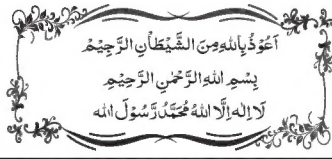 اَعُوْذُ بِاللّٰهِ مِنَ الشَّيْطٰانِ الرَّجِيْمِ
بِسْمِ اللّٰهِ الرَّحْمٰنِ الرَّحِيْمِ
لَا اِلٰهَ اِلَّا اللّٰهُ مُحَمَّدٌ رَّسُوْلُ الله